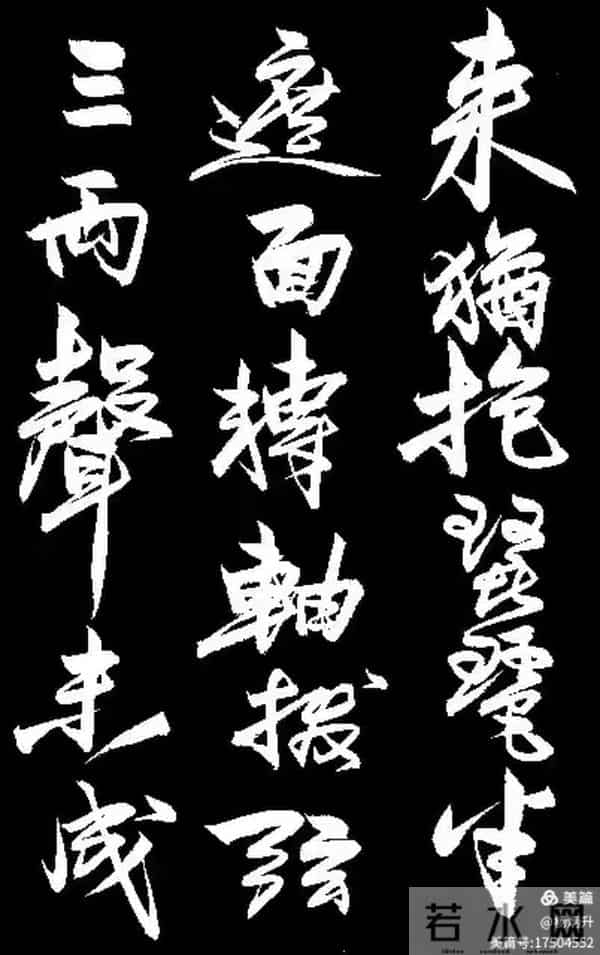 来猶抱琵琶半
遮面轉軸撥弦
三兩聲未成
美篇
美篇号:17504552
若水网